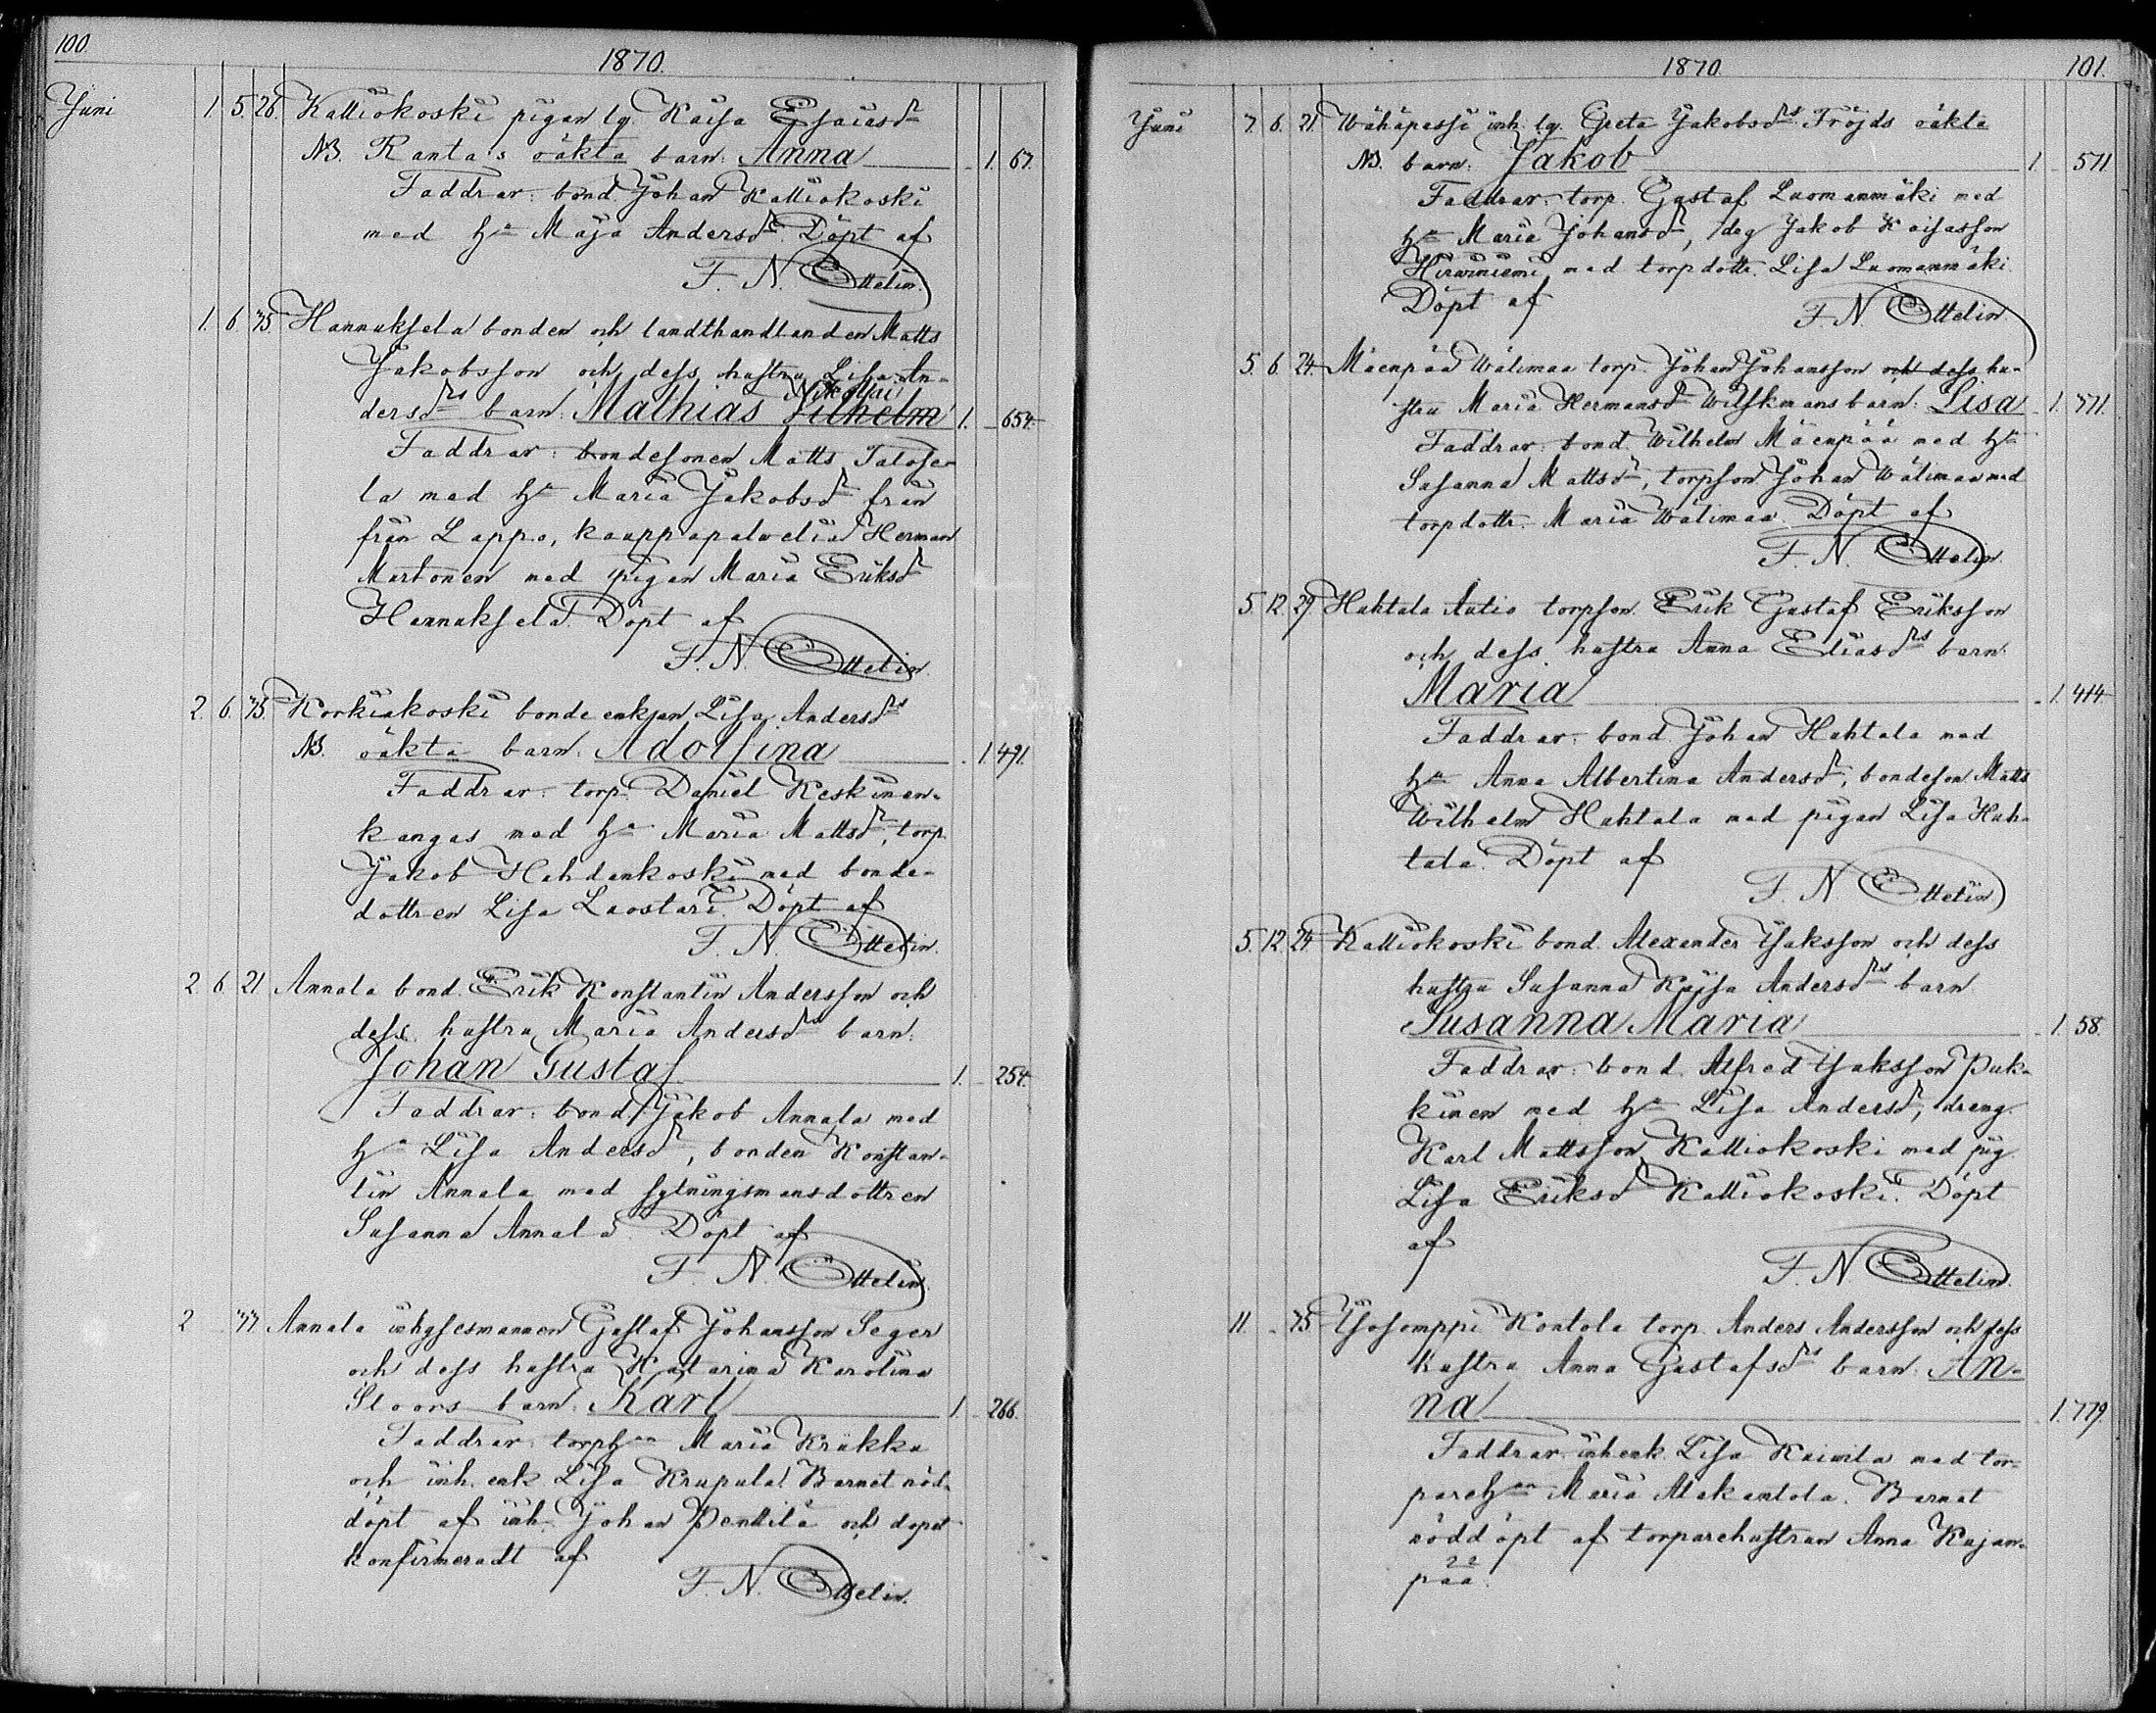 100.
1870.
Juni 1. 5. 26. Kalliokoski pigan lg. Kaisa Esaiasdr
NB. Ranta's oäkta barn: Anna 1. 67.
Faddrar: bond. Johan Kalliokoski
med hn Maja Andersdr. Döpt af
F. N. Ottelin.
1. 6. 35. Hannuksela bonden och landthandlanden Matts
Jakobsson och dess hustru Lisa An-
Nikolai
dersdrs barn: Mathias Vilhelm 1. 654.
Faddrar: bondesonen Matts Talose-
la med hn Maria Jakobsdr från
från Lappo, kauppapalvelia Herman
Martonen med pigan Maria Eriksdr
Hannuksela. Döpt af
F. N. Ottelin.
2. 6. 35. Korkiakoski bonde enkan Lisa Andersdrs
NB. oäkta barn: Adolfina 1 491.
Faddrar: torp. Daniel Keskinen-
kangas med hn Maria Mattsdr, torp.
Jakob Hahdenkoski med bonde-
dottren Lisa Luostari. Döpt af
F. N. Ottelin.
2. 6. 21 Annala bond. Erik Konstantin Andersson och
dess hustru Maria Andersdrs barn:
Johan Gustaf 1. 254.
Faddrar: bond. Jakob Annala med
hn Lisa Andersdr, bonden Konstan-
tin Annala med sytningsmansdottren
Susanna Annala. Döpt af
F. N. Ottelin.
2 37. Annala inhysesmannen Gustaf Johansson Seger
och dess hustru Katarina Karolina
Sloors barn: Karl 1. 266.
Faddrar: torphn Maria Krukka
och inh. enk. Lisa Krupula. Barnet nöd-
döpt af inh. Johan Penttilä och dopet
konfirmeradt af
F. N. Ottelin.
1870.
101.
Juni 7. 6. 21. Wähäpassi inh. lg. Greta Jakobsdrs Fröjds oäkta
NB. barn: Jakob 1. 511
Faddrar: torp. Gustaf Luomanmäki med
hn Maria Johansdr, dräg Jakob Kaisasson
Hirvuniemi med torpdottr. Lisa Luomanmäki.
Döpt af F. N. Ottelin.
5. 6. 24. Mäenpää Wälimaa torp. Johan Johansson och dess hu-
stru Maria Hermansdr Wilskmans barn: Lisa 1. 771.
Faddrar: bond. Wilhelm Mäenpää med hn
Susanna Mattsdr, torpson Johan Wälimaa med
torpdottr. Maria Wälimaa. Döpt af
F. N. Ottelin.
5. 12. 29. Huhtala Autio torpson Erik Gustaf Eriksson
och dess hustru Anna Eliasdrs barn
Maria 1. 414.
Faddrar: bond. Johan Huhtala med
hn Anna Albertina Andersdr, bondeson Matts
Wilhelm Huhtala med pigan Lisa Huh-
tala. Döpt af
F. N. Ottelin.
5. 12. 24. Kalliokoski bond. Alexander Isaksson och dess
hustru Susanna Kaisa Andersdrs barn
Susanna Maria 1. 58.
Faddrar: bond. Alfred Isaksson Puk-
kinen med hn Lisa Andersdr, dreng.
Karl Mattsson Kalliokoski med pig.
Lisa Eriksdr Kalliokoski. Döpt
af
F. N. Ottelin.
11. 35. Isosomppi Kontola torp. Anders Andersson och dess
hustru Anna Gustafsdrs barn: An-
na 1. 779.
Faddrar: inh. enk. Lisa Kaivila med tor-
parehn Maria Alakantola. Barnet
nöddöpt af torparehustrun Anna Kujan-
pää.